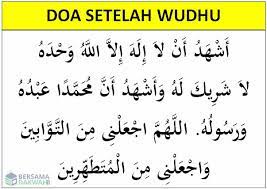 DOA SETELAH WUDHU
أَشْهَدُ أَنْ لاَ إِلَهَ إِلاَّ اللَّهُ وَحْدَهُ
لاَ شَرِيكَ لَهُ وَأَشْهَدُ أَنَّ مُحَمَّدًا عَبْدُهُ
وَرَسُولُهُ. اللَّهُمَّ اجْعَلْنِى مِنَ التَّوَّابِينَ
وَاجْعَلْنِى مِنَ الْمُتَطَهِّرِينَ
BERSAMA
DAKWAH